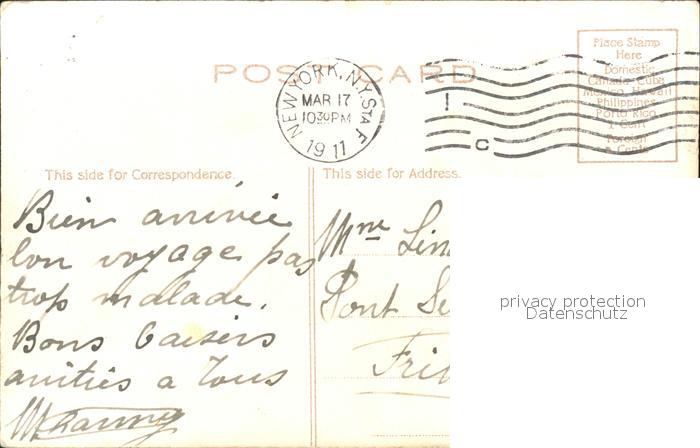 POST CARD
NEW YORK, N.Y. STA F
MAR 17
10 30 PM
1911
1
C
Place Stamp
Here
Domestic
Canada, Cuba
Mexico, Hawaii
Philippines
Porto Rico
1 Cent
Foreign
2 Cents
This side for Correspondence.
This side for Address.
Bien arrivée
bon voyage pas
trop malade.
Bons baisers
amitiés a tous
Mme
Pont
privacy protection
Datenschutz